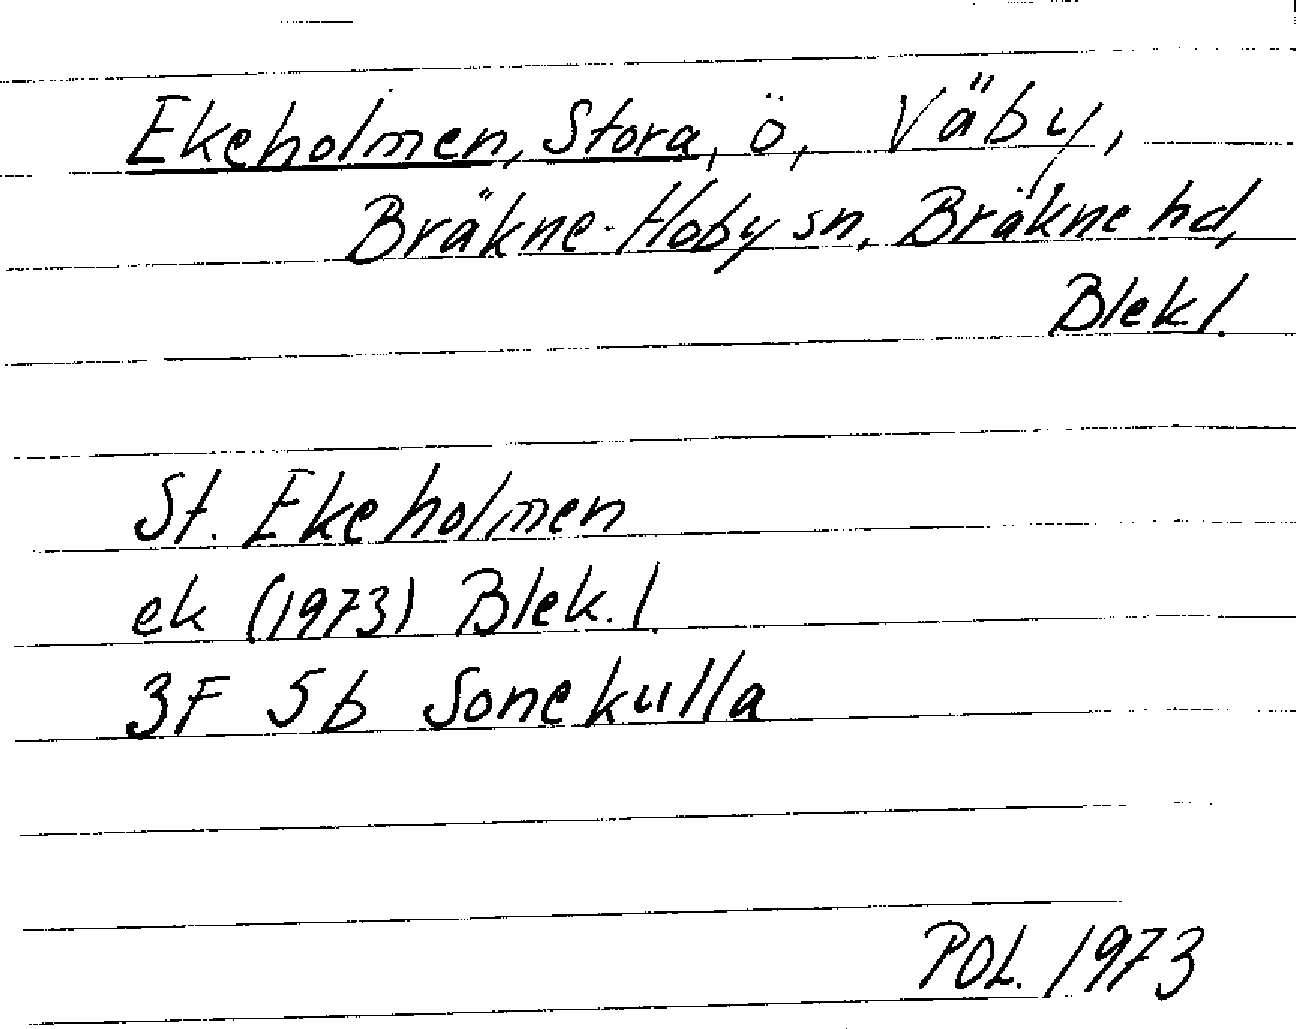 Ekeholmen, Stora, ö, Väby,
Bräkne-Hoby sn, Bräkne hd,
Blek l.
St. Ekeholmen
ek (1973) Blek. l.
3F 5b Sonekulla
POL. 1973